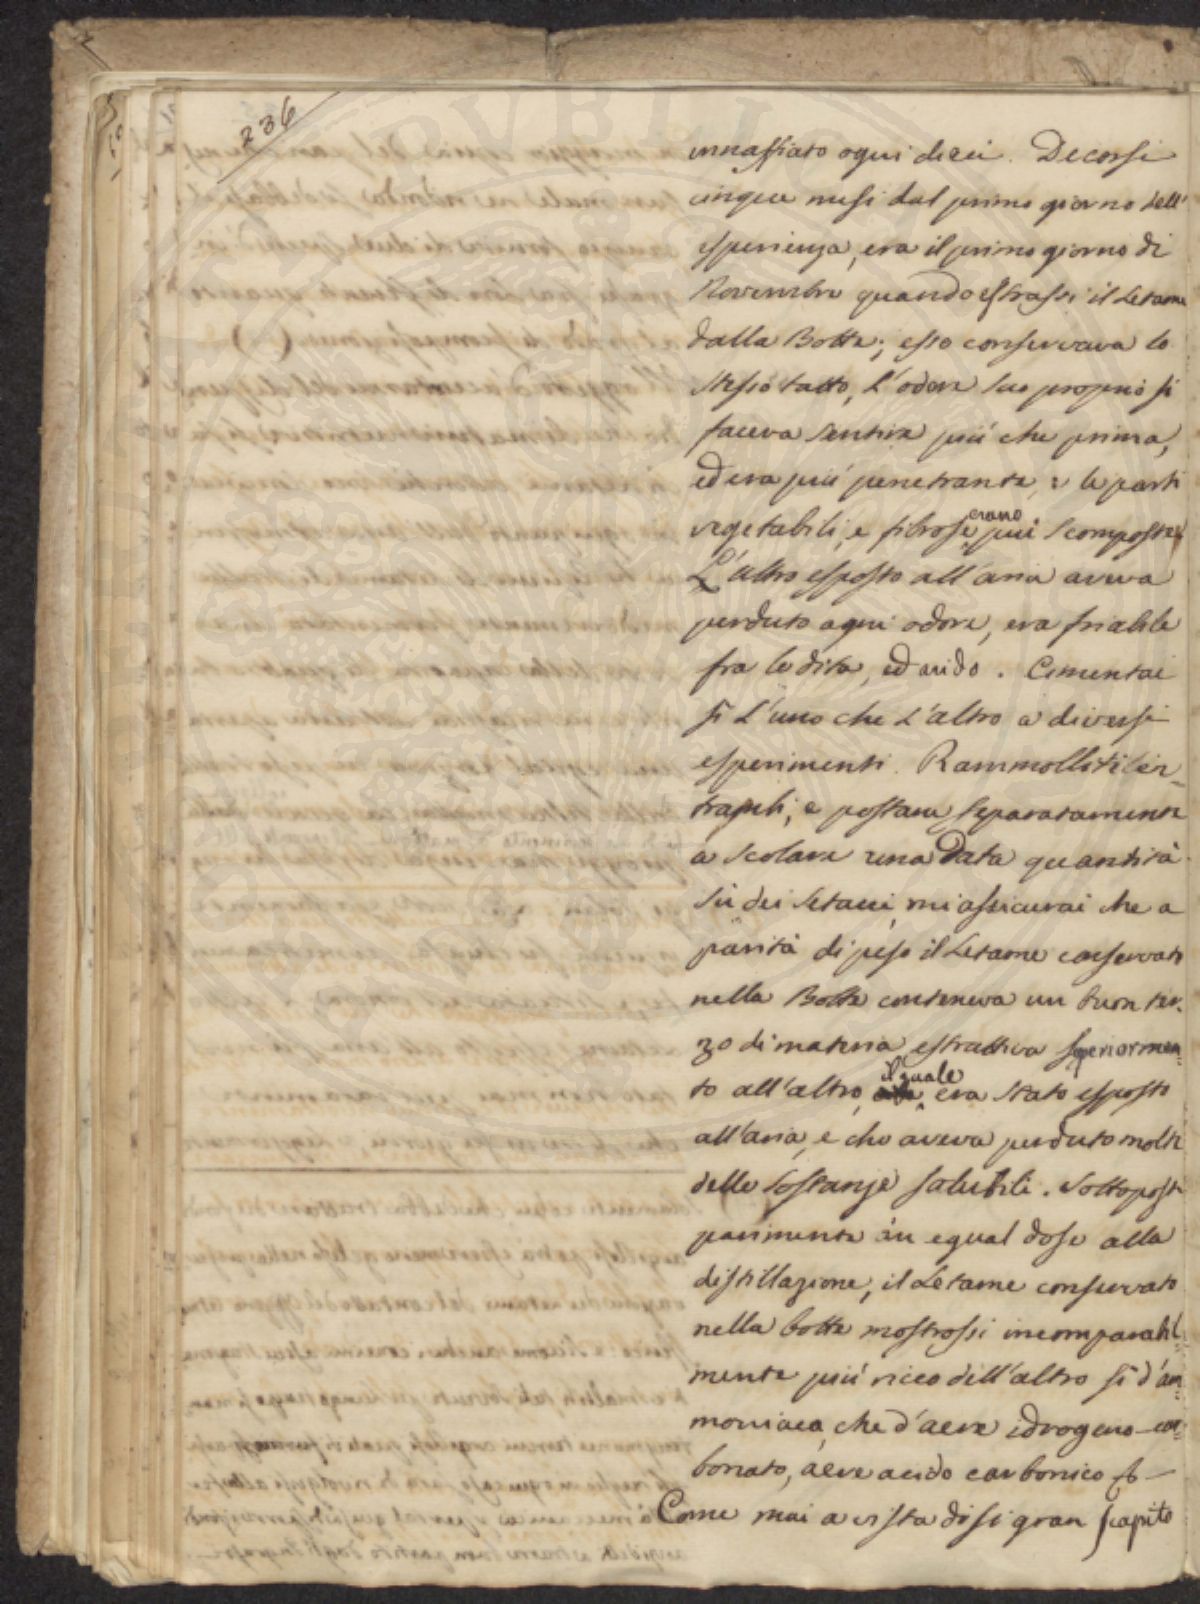 236
innaffiato ogni dieci. Decorsi
cinque mesi dal primo giorno dell'
esperienza, era il primo giorno di
Novembre quando estrassi il Letame
dalla Botte; esso conservava lo
stesso tatto, l'odore suo proprio si
faceva sentire più che prima,
ed era più penetrante, e le parti
vegetabili, e fibrose erano più scomposte.
L'altro esposto all'aria aveva
perduto ogni odore, era friabile
fra le dita, ed arido. Cimentai
sì l'uno che l'altro a diversi
esperimenti. Rammolliti en=
trambi, e postane separatamente
a scolare una Data quantità
sù dei setacci, mi assicurai che a
parità di peso il Letame conservato
nella Botte conteneva un buon ter=
zo di materia estrattiva superiormen=
te all'altro, il quale era stato esposto
all'aria, e che aveva perduto molte
delle sostanze salubili. Sottoposti
parimente in egual dose alla
distillazione, il Letame conservato
nella botte mostrossi incomparabil=
mente più ricco dell'altro sì d'am=
moniaca, che d'aere idrogeno-car=
bonato, aere acido carbonico
Come mai a vista di si gran scapito